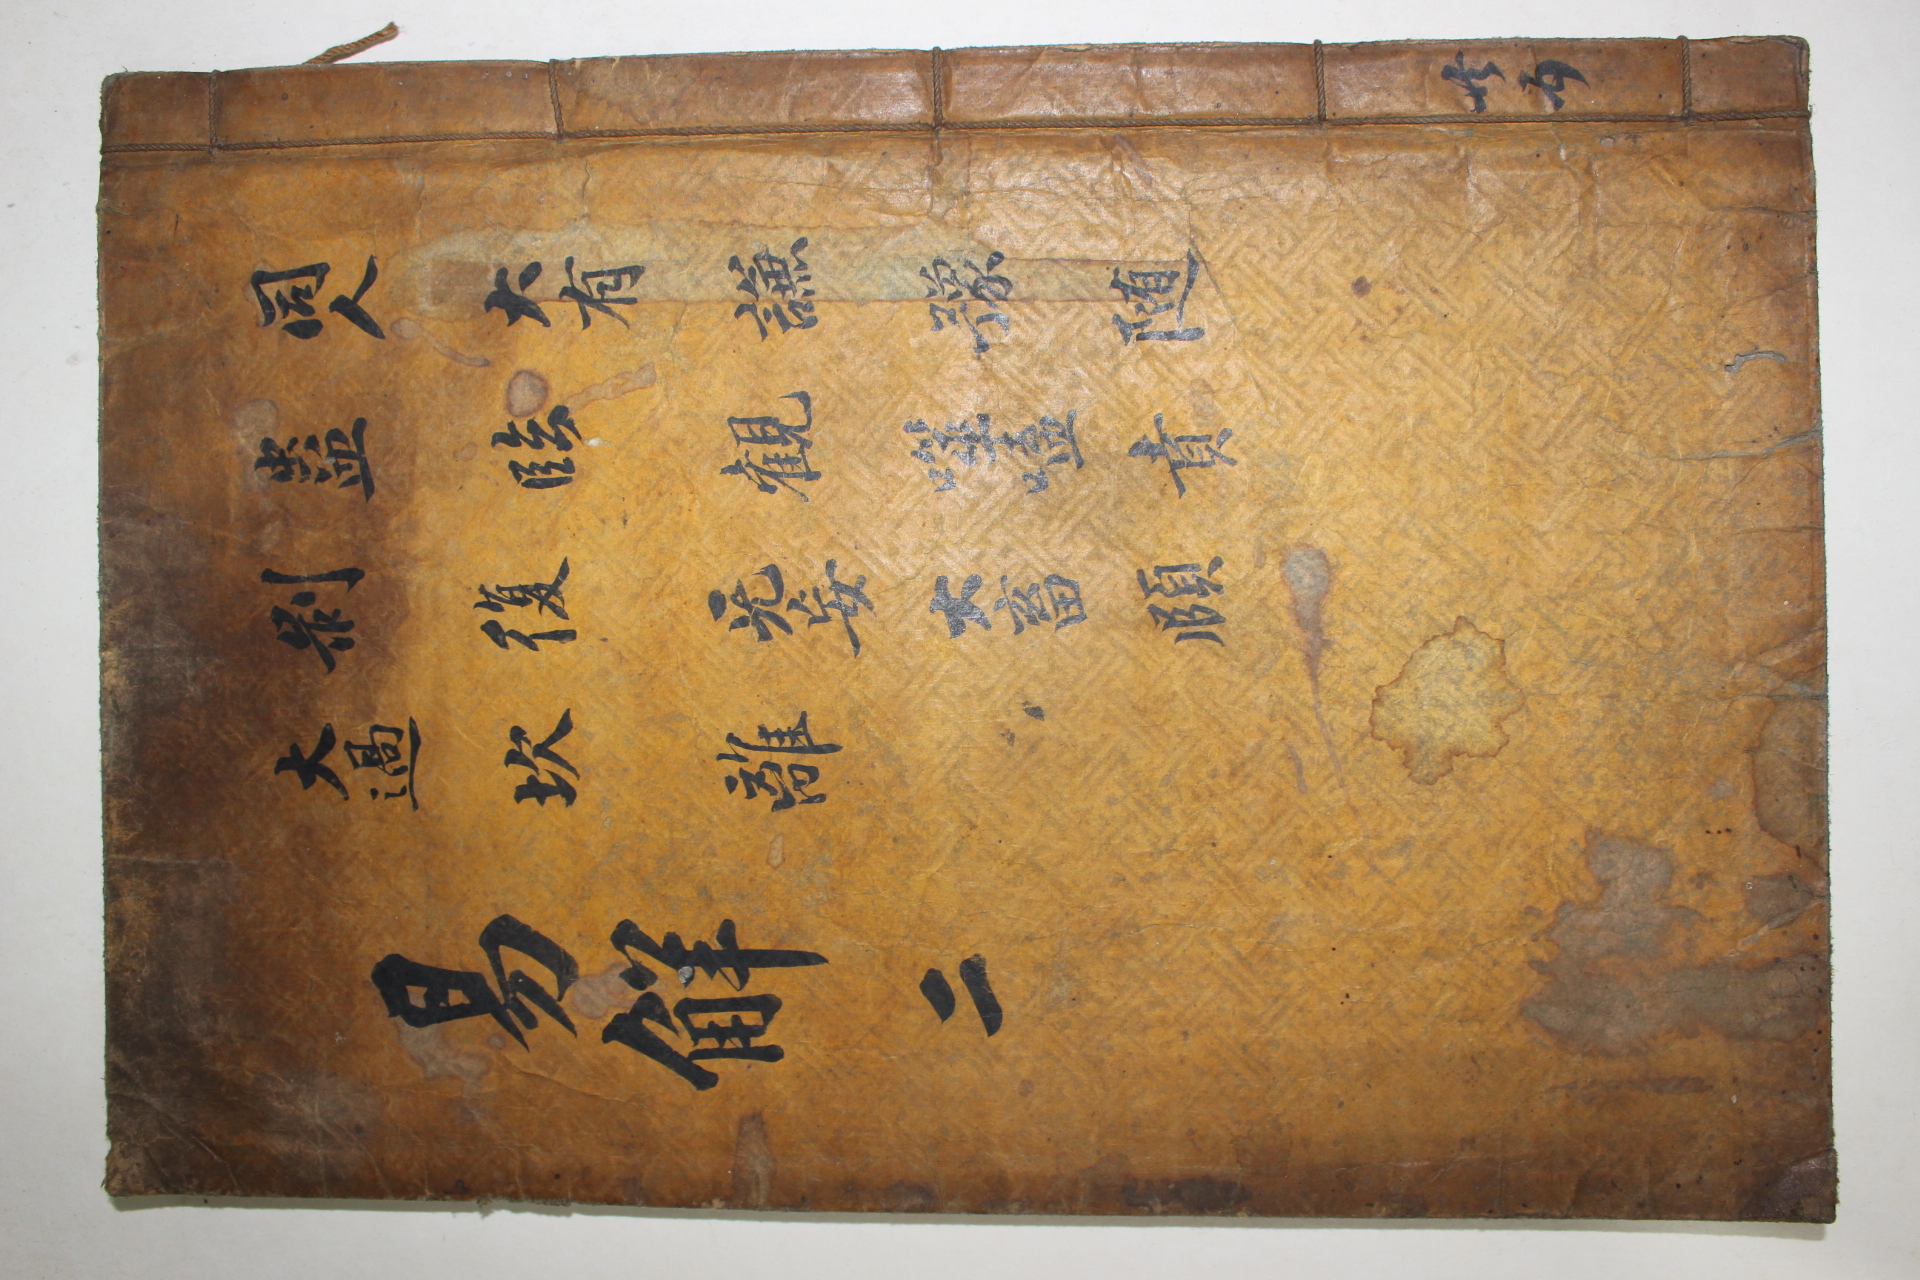 同人 大有 謙 豫 随
蠱 臨 觀 噬嗑 賁
剝 復 无妄 大畜 頤
大過 坎 離
易解 二